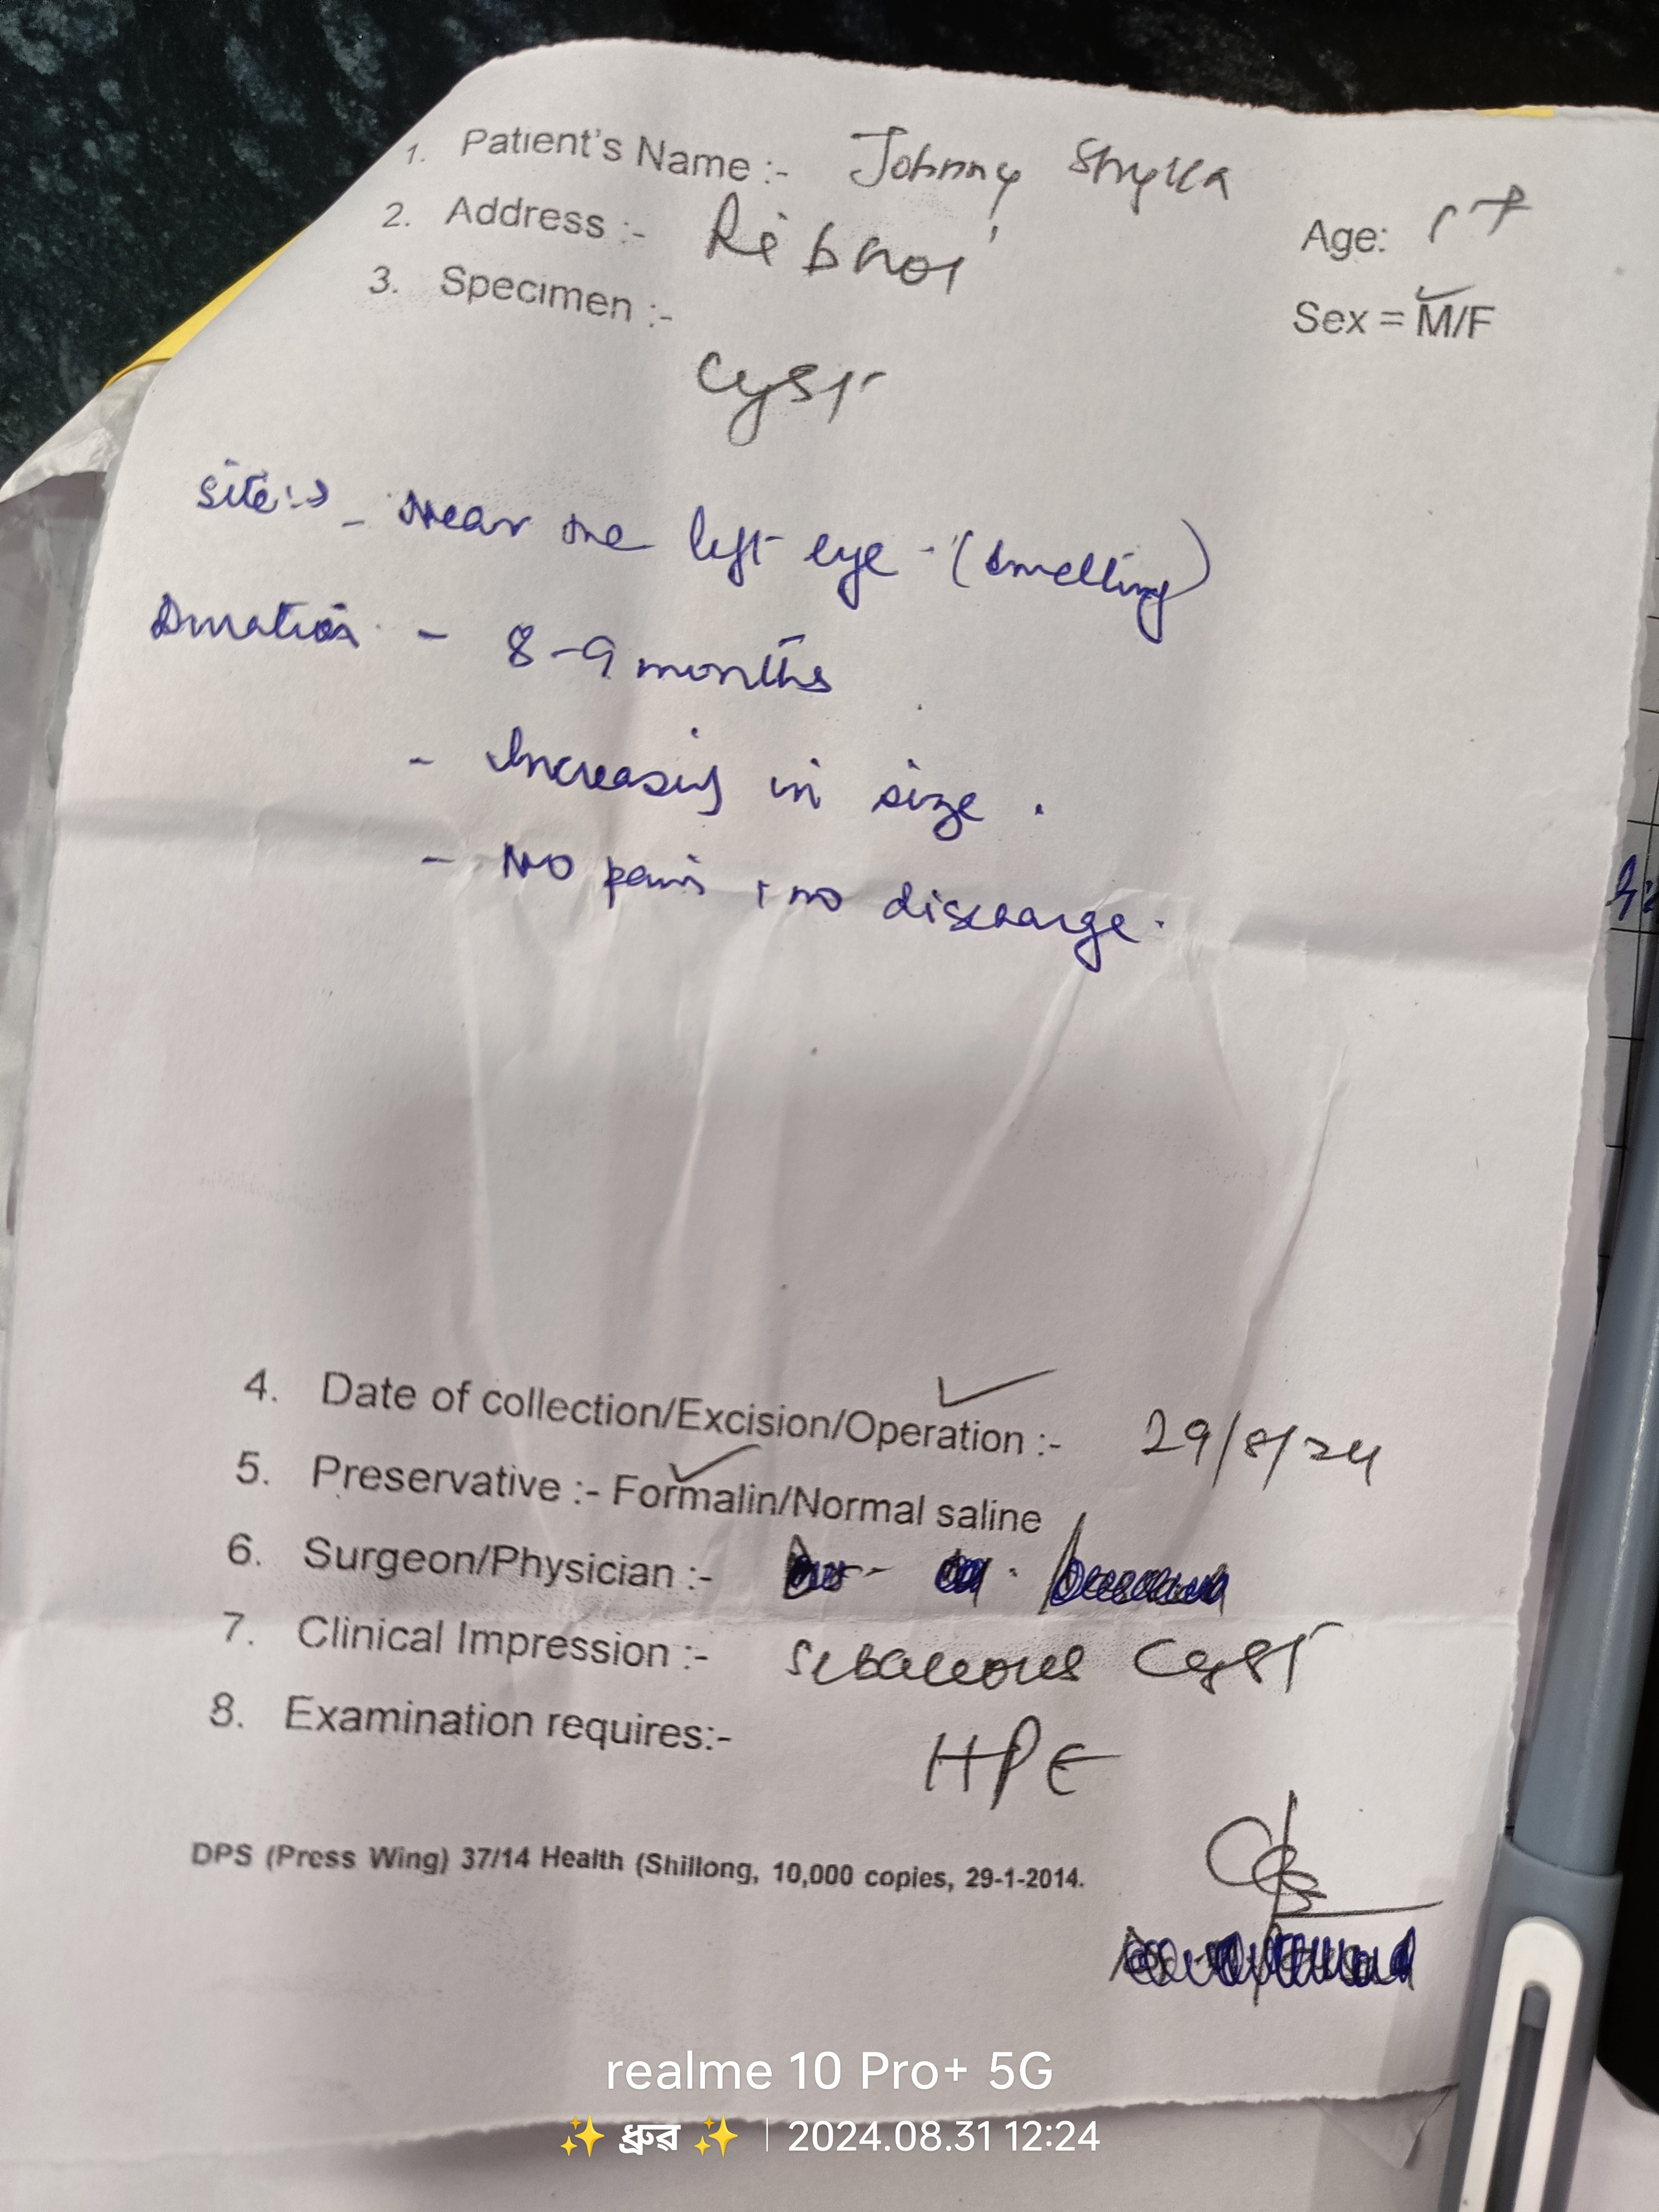 1. Patient's Name :- Johnny Shylla
2. Address :- Ribhoi
Age: 17
3. Specimen :-
Sex = M/F
Cyst
Site:- - Near the left eye - (swelling)
Duration - 8-9 months
- Increasing in size.
- No pain, no discharge.
4. Date of collection/Excision/Operation :- 29/8/24
5. Preservative :- Formalin/Normal saline
6. Surgeon/Physician :-
7. Clinical Impression :- Sebaceous Cyst
8. Examination requires:-
HPE
DPS (Press Wing) 37/14 Health (Shillong, 10,000 copies, 29-1-2014.
realme 10 Pro+ 5G
✨ ধ্ৰুৱ ✨ | 2024.08.31 12:24